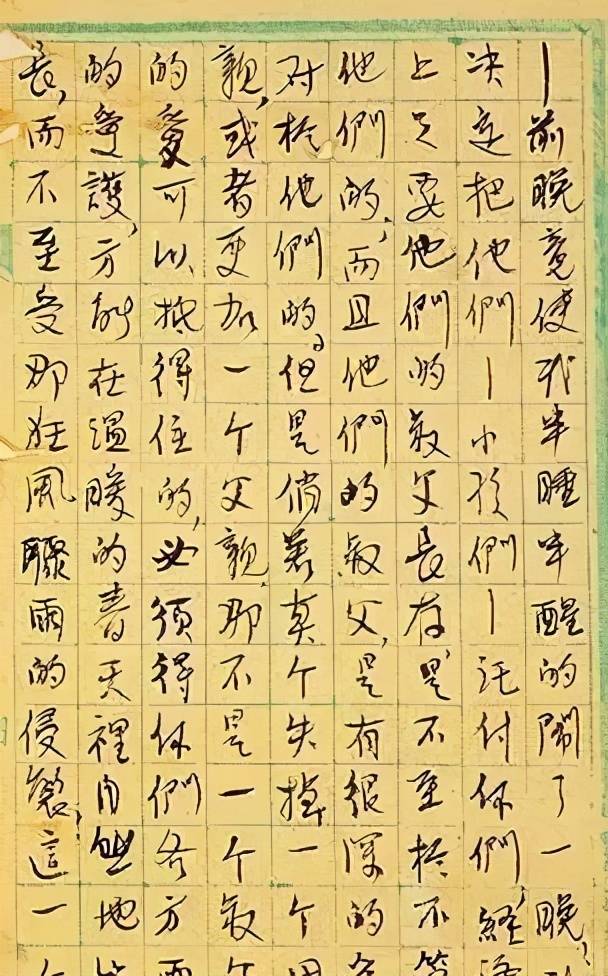 —前晚竟使我半睡半醒的鬧了一晚，
决定把他們—小孩們—託付你們，經
上只要他們的叔父長存，是不至於不
他們的，而且他們的叔父，是有很深的
对於他們的。但是倘若真个失掉一个
親，或者更加一个父親，那不是一个叔
的愛可以抵得住的，必須得你們各方
的愛護，方能在温暖的春天裡自然地
長，而不至受那狂風驟雨的侵襲，這一